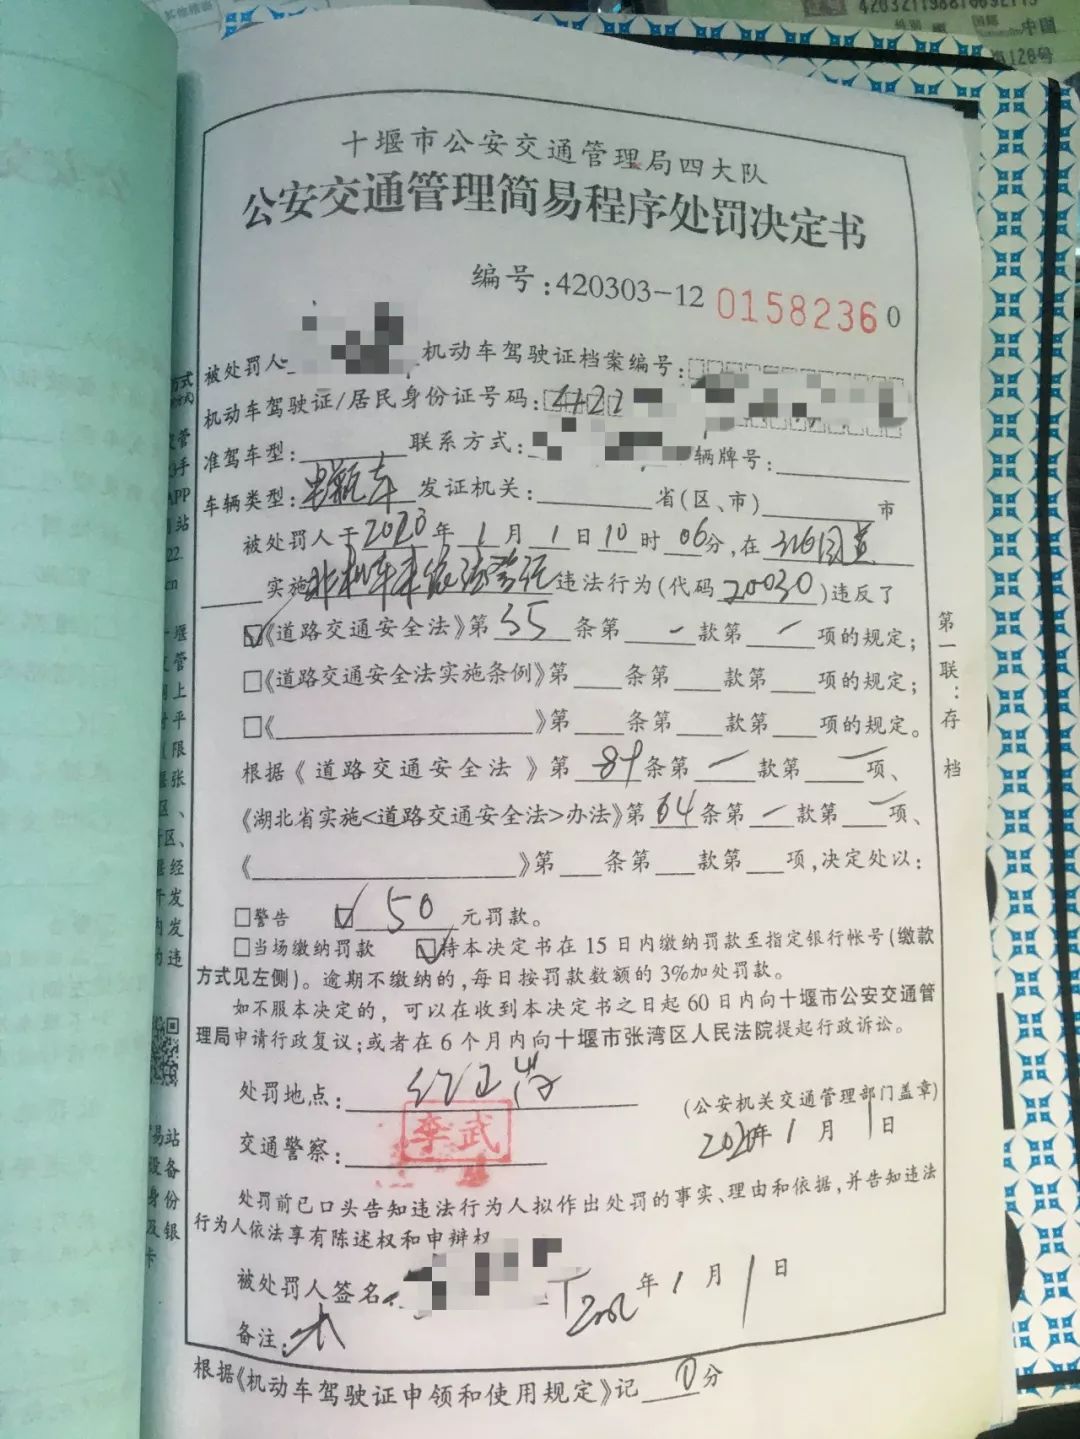 其他槽画
性别
国籍
中国
128号
十堰市公安交通管理局四大队
公安交通管理简易程序处罚决定书
编号:420303-12 01582360
被处罚人 机动车驾驶证档案编号:
机动车驾驶证/居民身份证号码:4222
准驾车型: 联系方式: 辆牌号:
车辆类型:电瓶车 发证机关: 省(区、市) 市
被处罚人于2020年1月1日10时06分,在316国道
实施 违法行为(代码20030)违反了
☑《道路交通安全法》第55条第一款第一项的规定;
□《道路交通安全法实施条例》第 条第 款第 项的规定;
□《 》第 条第 款第 项的规定。
根据《道路交通安全法》第89条第一款第 项、
《湖北省实施<道路交通安全法>办法》第64条第一款第一项、
《 》第 条第 款第 项,决定处以:
□警告 ☑50元罚款。
□当场缴纳罚款 ☑持本决定书在15日内缴纳罚款至指定银行帐号(缴款
方式见左侧)。逾期不缴纳的,每日按罚款数额的3%加处罚款。
如不服本决定的,可以在收到本决定书之日起60日内向十堰市公安交通管
理局申请行政复议;或者在6个月内向十堰市张湾区人民法院提起行政诉讼。
处罚地点:
(公安机关交通管理部门盖章)
交通警察:李武
2020年1月1日
处罚前已口头告知违法行为人拟作出处罚的事实、理由和依据,并告知违法
行为人依法享有陈述权和申辩权
被处罚人签名 年1月1日
备注:
根据《机动车驾驶证申领和使用规定》记0分
第一联:存档